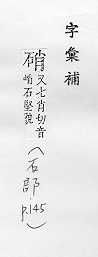 字彙補
硝又七肖切音
峭石堅貌
(石部.
p.145)